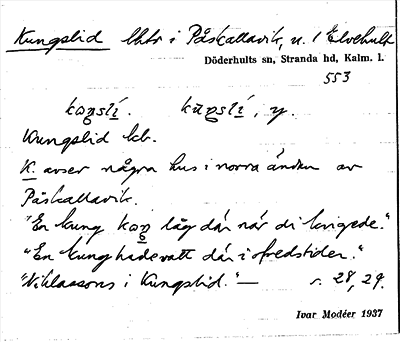 Kungslid bbtr i Påskallavik, u. 1 Elvehult
Döderhults sn, Stranda hd, Kalm. l.
553
koŋslí. kuŋslí, y.
Kungslid kb.
K. avser några hus i norra ändan av
Påskallavik.
"En kung koŋ låg där när di krigede."
"En kung hade vatt där i ofredstider."
"Niklassons i Kungslid." — s. 28, 29.
Ivar Modéer 1937